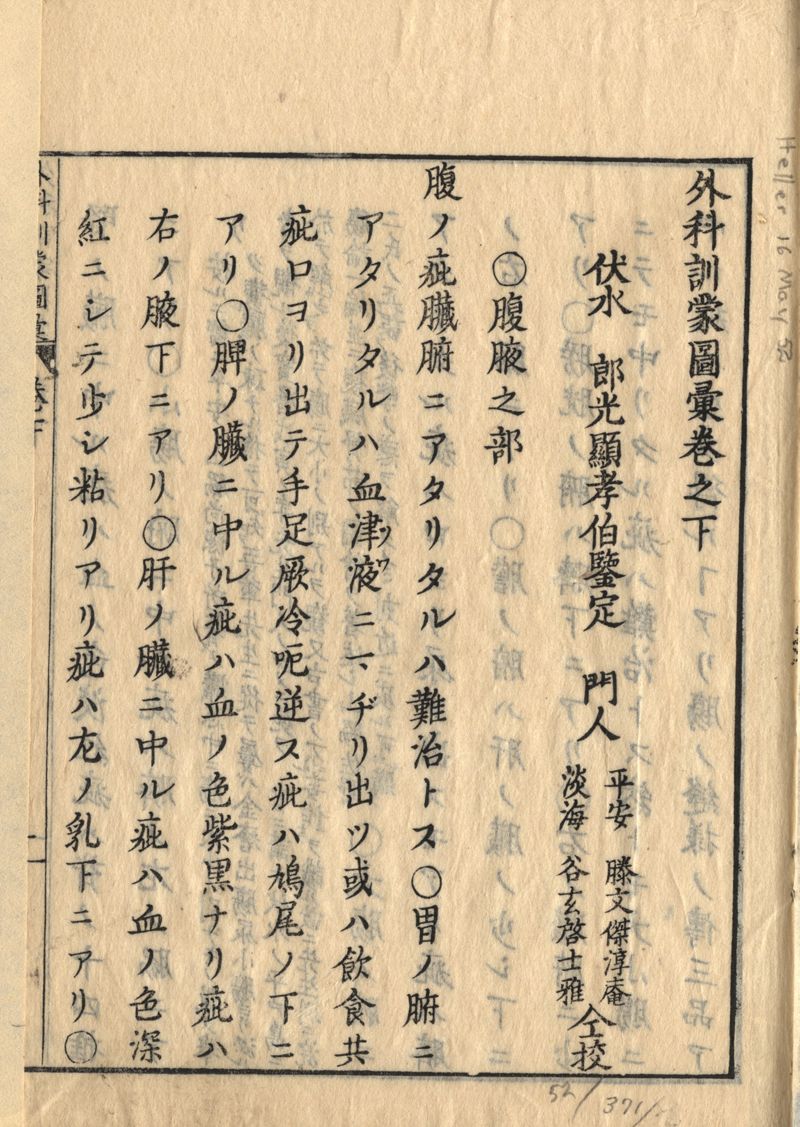 外科訓蒙圖彙卷之下
伏水 郎光顯孝伯鑒定 門人 平安 滕文傑淳庵
淡海 谷玄啓士雅 仝校
〇腹腋之部
腹ノ疵臓腑ニアタリタルハ難治トス〇胃ノ腑ニ
アタリタルハ血津液ニマヂリ出ツ或ハ飲食共
疵口ヨリ出テ手足厥冷呃逆ス疵ハ鳩尾ノ下ニ
アリ〇脾ノ臓ニ中ル疵ハ血ノ色紫黒ナリ疵ハ
右ノ腋下ニアリ〇肝ノ臓ニ中ル疵ハ血ノ色深
紅ニシテ少シ粘リアリ疵ハ左ノ乳下ニアリ〇
外科訓蒙圖彙 卷下
一
Heller 16 May
52/371/